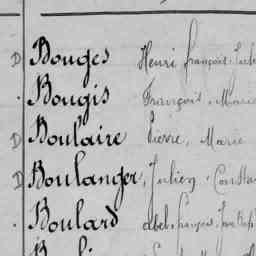 D Bouges Henri françois
. Bougis François Marie
D Boulaire Pierre, Marie
D Boulanger, Julien
. Boulard abel, françois